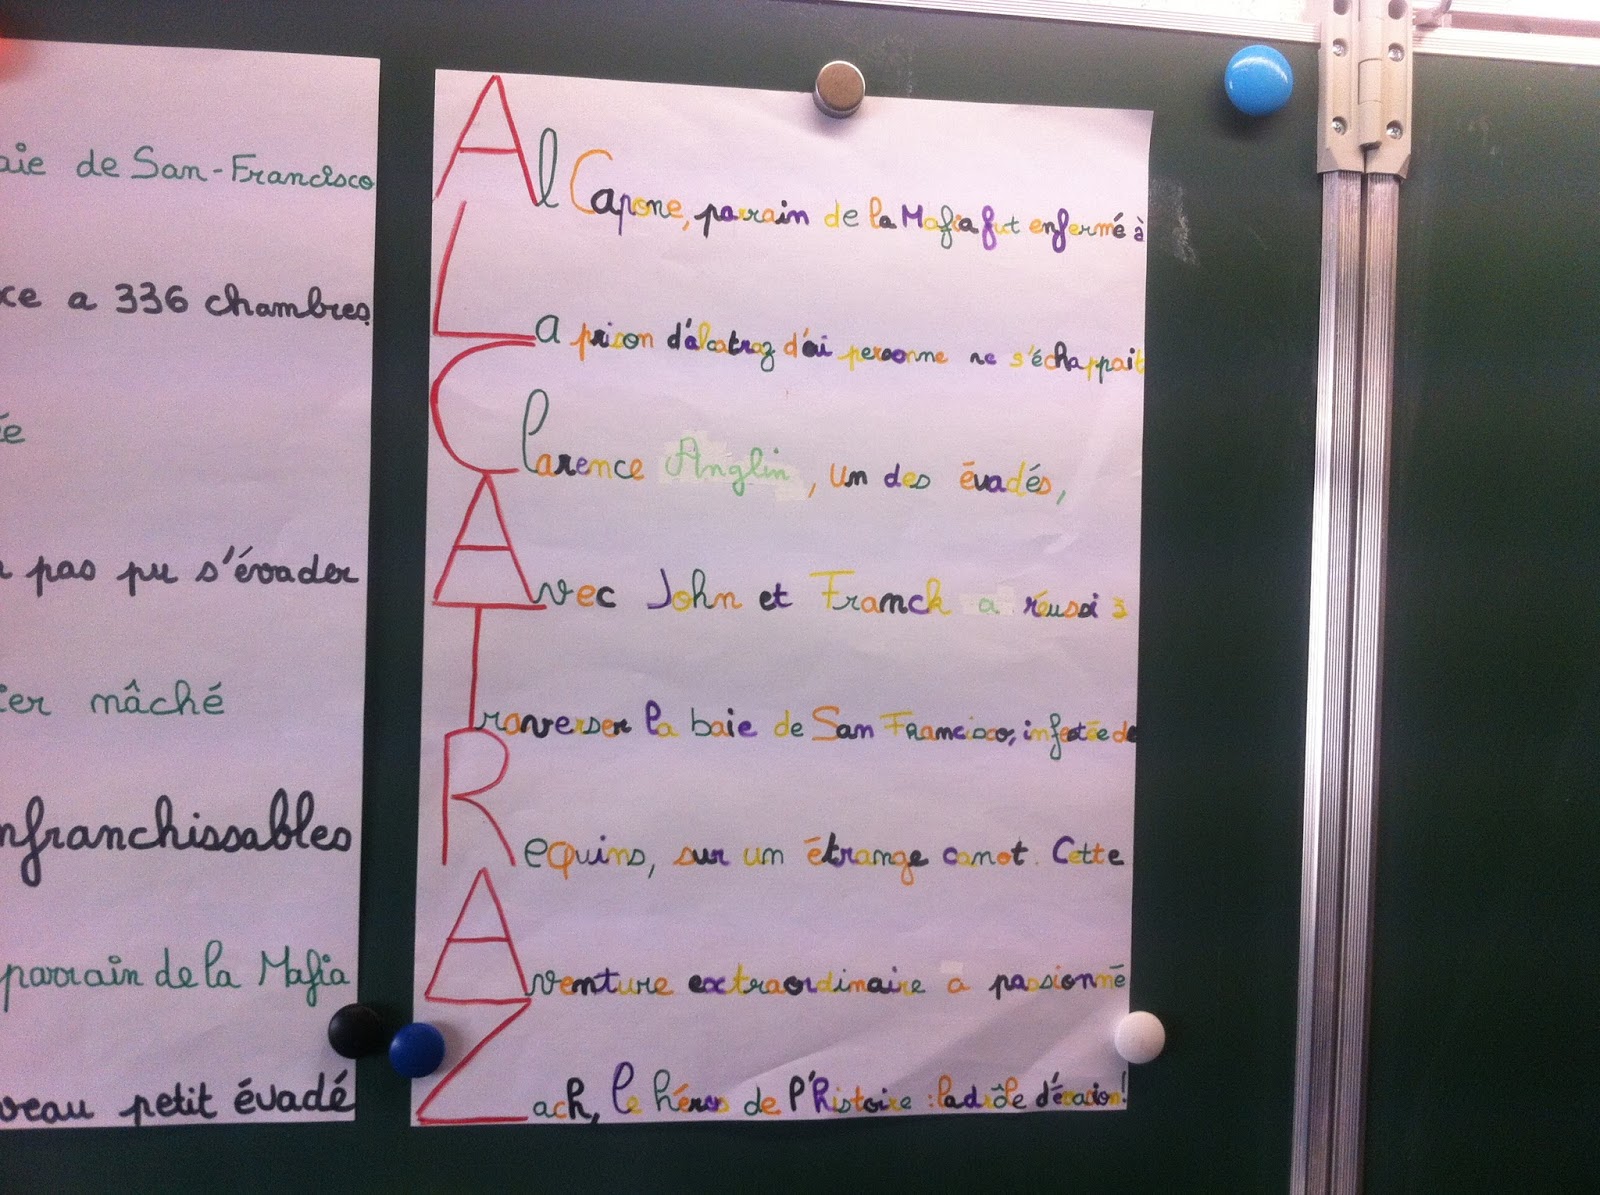 aie de San-Francisco
ce a 336 chambres
ée
pas pu s'évader
ier mâché
nfranchissables
parrain de la Mafia
veau petit évadé
Al Capone, parrain de la Mafia fut enfermé à
La prison d'alcatraz d'où personne ne s'échappait
Clarence Anglin, un des évadés,
Avec John et Franck a réussi à
Traverser la baie de San Francisco, infestée de
Requins, sur un étrange canot. Cette
Aventure extraordinaire a passionné
Zach, le héros de l'histoire : la drôle d'évasion!